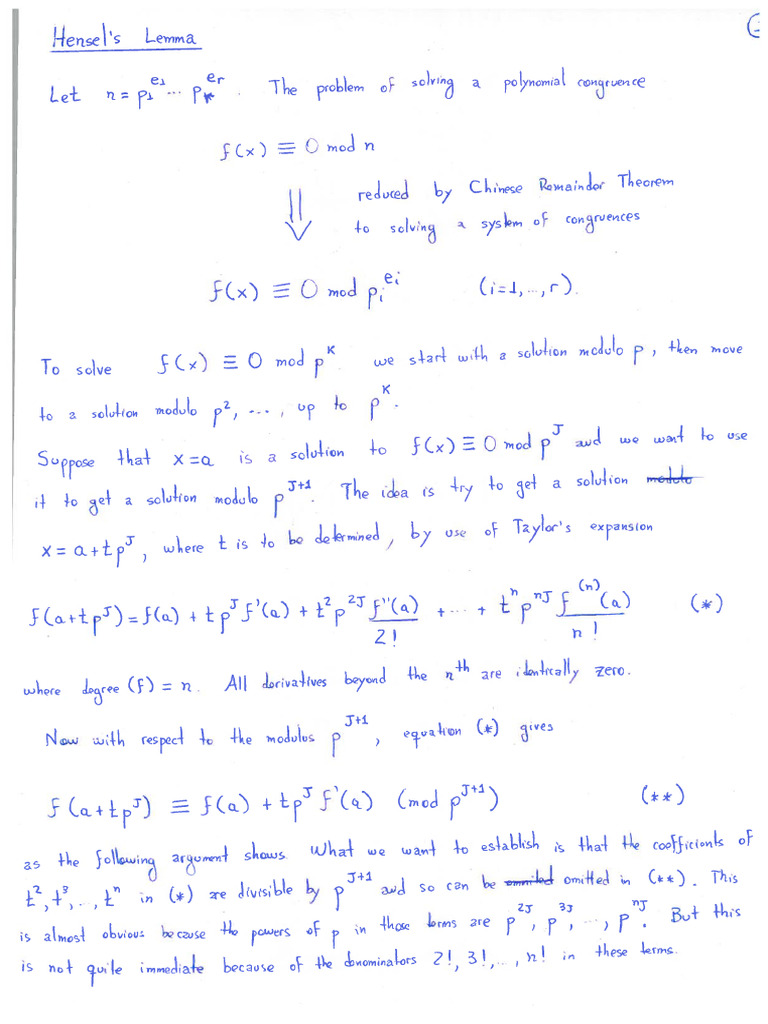 Hensel's Lemma
Let n = p₁^{e₁} ... p_r^{e_r}. The problem of solving a polynomial congruence
f(x) ≡ 0 mod n
⇓ reduced by Chinese Remainder Theorem
to solving a system of congruences
f(x) ≡ 0 mod p_i^{e_i} (i=1, ..., r).
To solve f(x) ≡ 0 mod p^K we start with a solution modulo p, then move
to a solution modulo p², ..., up to p^K.
Suppose that x = a is a solution to f(x) ≡ 0 mod p^J and we want to use
it to get a solution modulo p^{J+1}. The idea is try to get a solution
x = a + tp^J, where t is to be determined, by use of Taylor's expansion
f(a+tp^J) = f(a) + tp^J f'(a) + t² p^{2J} f''(a)/2! + ... + t^n p^{nJ} f^{(n)}(a)/n! (*)
where degree (f) = n. All derivatives beyond the n^{th} are identically zero.
Now with respect to the modulus p^{J+1}, equation (*) gives
f(a+tp^J) ≡ f(a) + tp^J f'(a) (mod p^{J+1}) (**)
as the following argument shows. What we want to establish is that the coefficients of
t², t³, .., t^n in (*) are divisible by p^{J+1} and so can be omitted in (**). This
is almost obvious because the powers of p in those terms are p^{2J}, p^{3J}, ..., p^{nJ}. But this
is not quite immediate because of the denominators 2!, 3!, ..., n! in these terms.